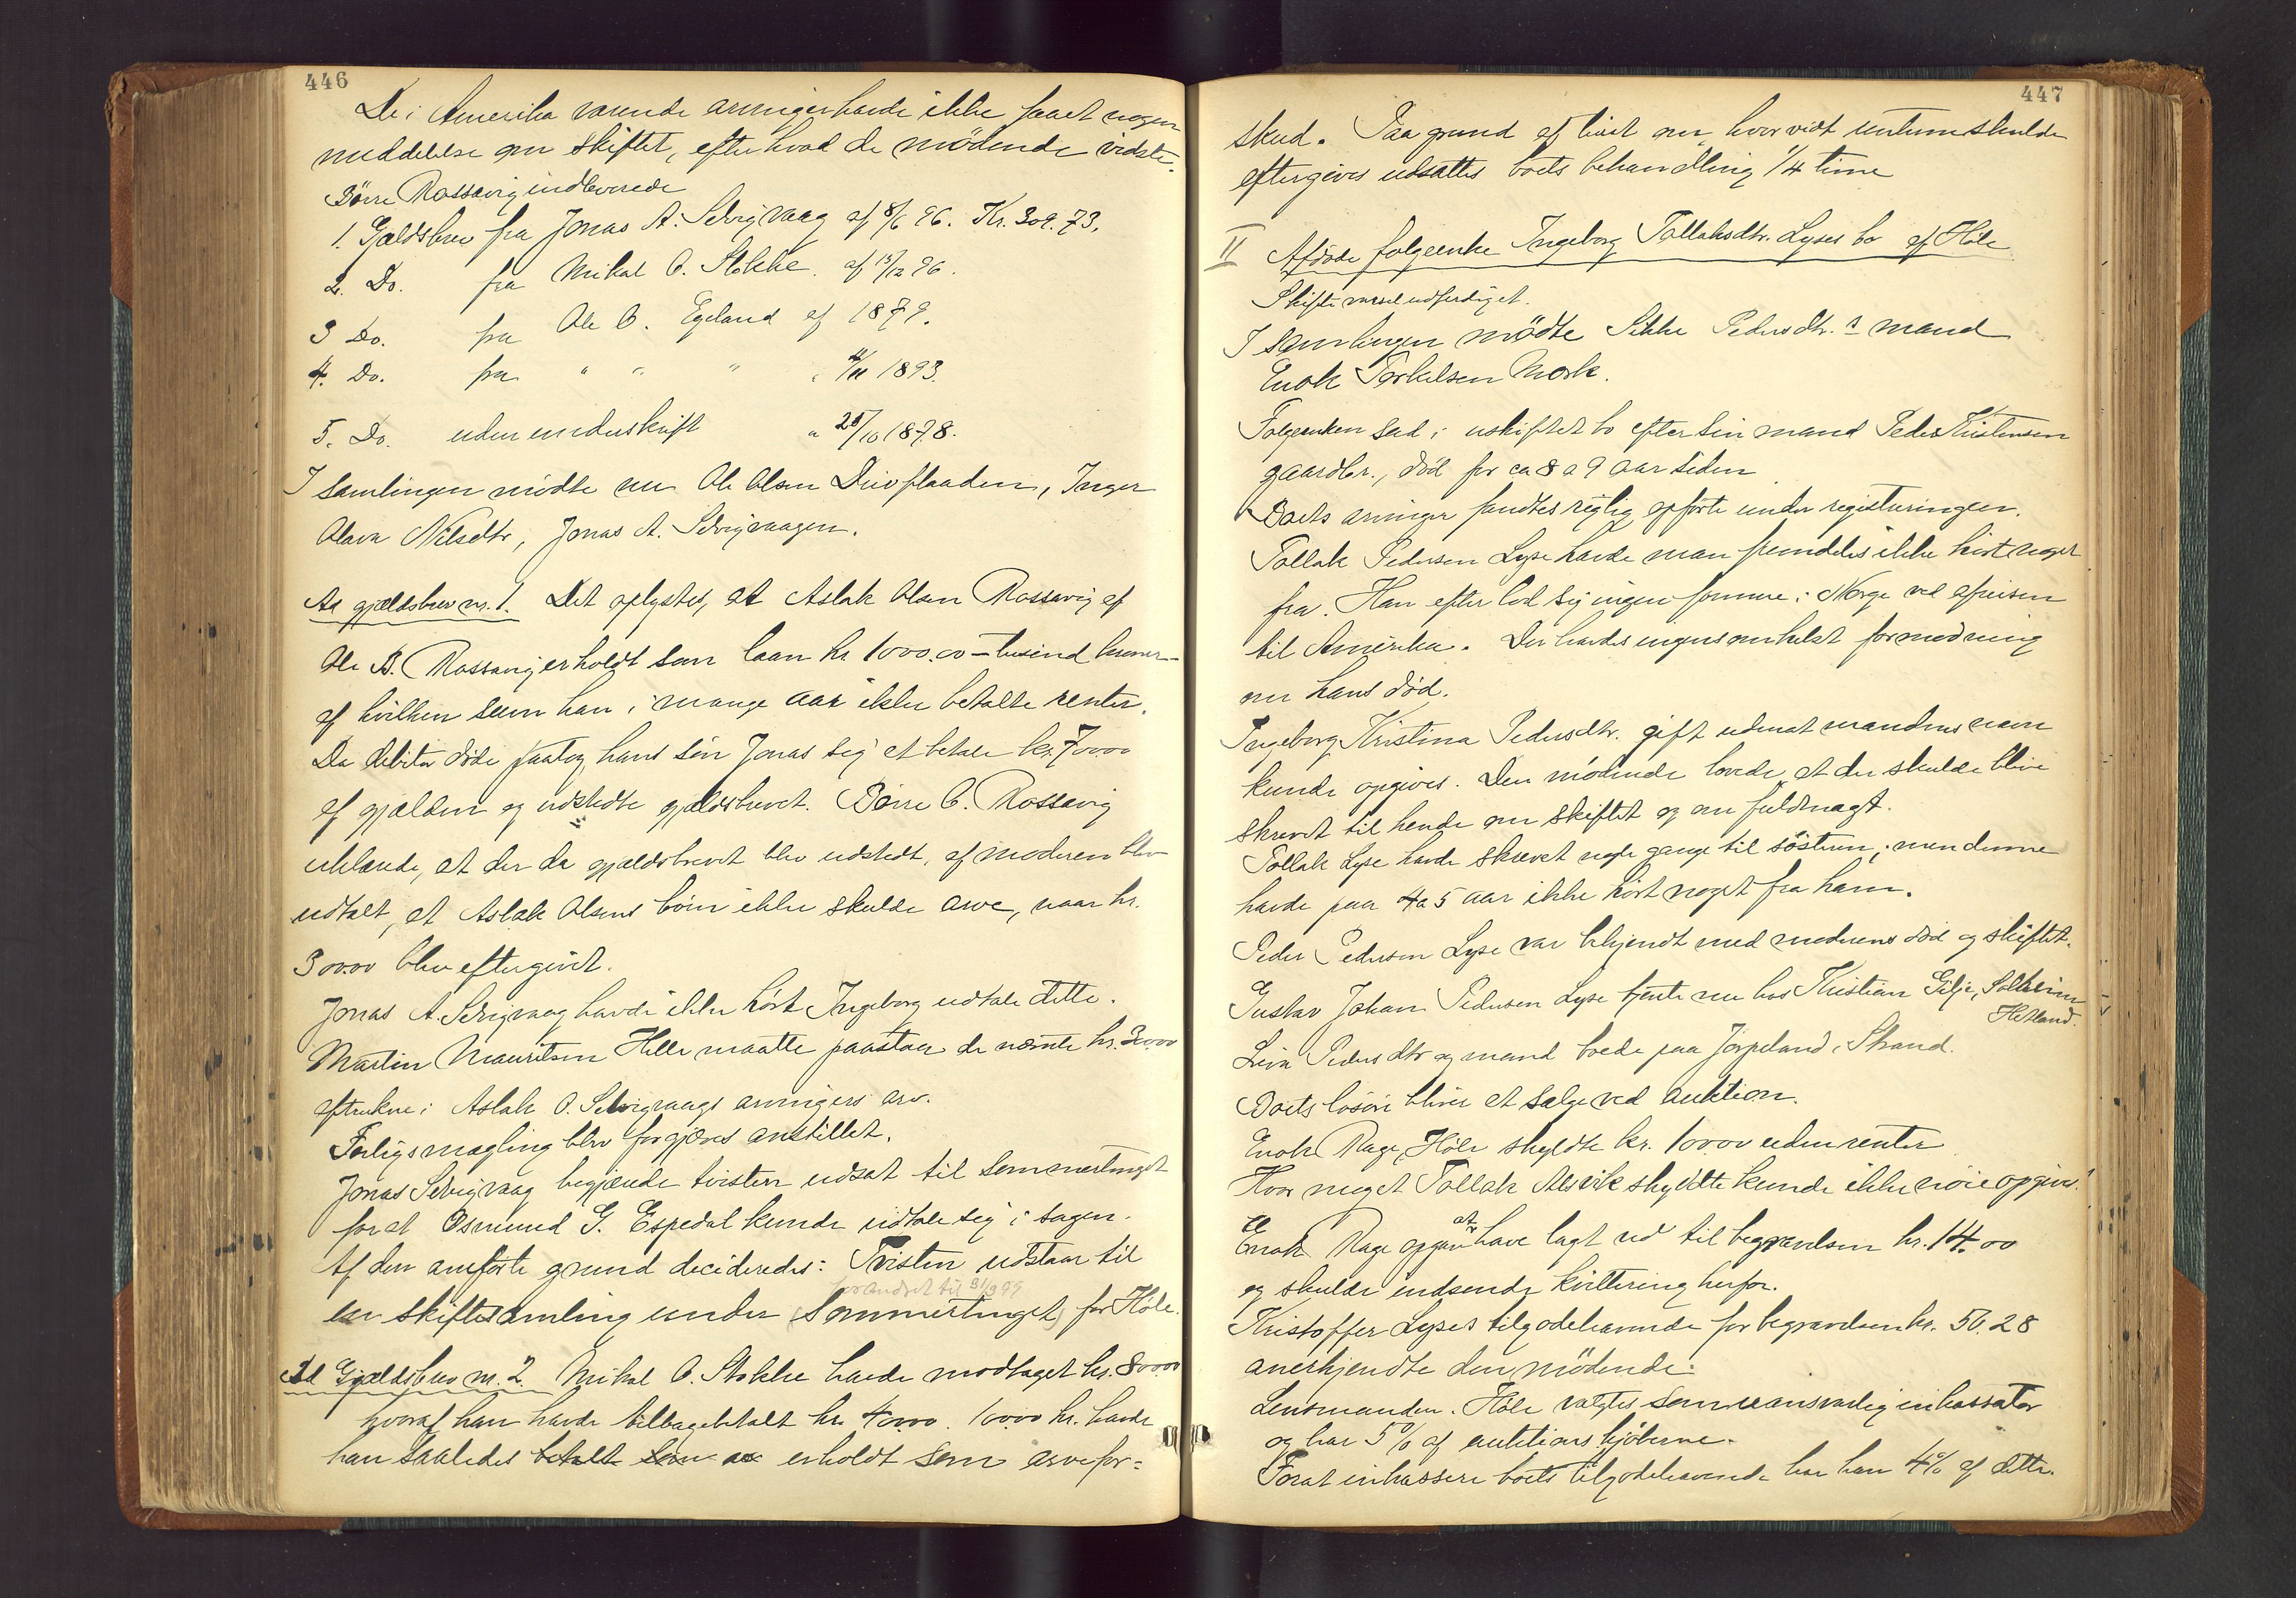 446
De i Amerika værende arvinger havde ikke faaet nogen
meddelelse om skiftet, efter hvad de mödende vidste.
Börre Rossavig indleverede
1. Gjældsbrev fra Jonas A. Selvigvaag af 8/6 96. Kr. 309.73.
2. Do. fra Mikal O. Stokke af 15/12 96.
3 Do. fra Ole O. Egeland af 1879.
4. Do. fra " " " " /11 1893.
5. Do. uden underskrift " 25/10 1878.
I samlingen mödte nu Ole Olsen , Inger
Olava Nilsdtr, Jonas A. Selvigvaagen.
Ad gjældsbrev nr. 1. Det oplystes, at Aslak Olsen Rossavig af
Ole B. Rossavig erholdt som laan kr 1000.00 – tusind kroner –
af hvilken sum han i mange aar ikke betalte renter.
Da debitor döde paatog hans sön Jonas sig at betale kr. 700.00
af gjælden og udstedte gjældsbrevet. Börre O. Rossavig
erklærede, at der da gjældsbrevet blev udstedt, af moderen blev
udtalt, at Aslak Olsens börn ikke skulde arve, naar kr.
300.00 blev eftergivet.
Jonas A. Selvigvaag havde ikke hört Ingeborg udtale dette.
Martin Mauritsen Helle maatte paastaa de nævnte kr. 300.00
fratrukne i Aslak O. Selvigvaags arvingers arv.
Forligsmægling blev forgjæves anstillet.
Jonas Selvigvaag begjærede tvisten udsat til sommertinget
for at Osmund G. Espedal kunde udtale sig i sagen.
Af den anförte grund decideredes: Tvisten udstaar til
forandret til 31/3 99
en skiftesamling under (sommertinget) for Höle.
Ad Gjældsbrev nr. 2. Mikal O. Stokke havde modtaget kr. 800.00
hvoraf han havde tilbagebetalt kr. 400.00. 100.00 kr. havde
han saaledes betalt som ar erholdt som arvefor=
447
skud. Paa grund af tvist om, hvorvidt renterne skulde
eftergives udsattes boets behandling 1/4 time
II Afdöde folgeenke Ingeborg Tollaksdtr. Lyses bo af Höle
Skiftevarsel udferdiget.
I samlingen mödte Sikke Pedersdtr.s mand
Enok Torkelsen Mork.
Folgeenken sad i uskiftet bo efter sin mand Peder Kristensen
gaardbr., död for ca 8 a 9 aar siden
Boets arvinger fandtes rigtig opförte under registreringen.
Tollak Pedersen Lyse havde man fremdeles ikke hört noget
fra. Han efterlod sig ingen formue i Norge ved afreisen
til Amerika. Der havdes ingensomhelst formodning
om hans död.
Ingeborg Kristina Pedersdtr. gift uden at mandens navn
kunde opgives. Den mödende lovede, at der skulde blive
skrevet til hende om skiftet og om fuldmagt.
Tollak Lyse havde skrevet nogle gange til söstrene; men denne
havde paa 4 a 5 aar ikke hört noget fra ham.
Peder Pedersen Lyse var bekjendt med moderens död og skiftet.
Gustav Johan Pedersen Lyse tjente nu hos Kristian Gilje, Solheim
Hetland.
Pedersdtr og mand boede paa Jörpeland i Strand.
Boets lösöre bliver at sælge ved auktion.
Enok Rage, Höle skyldte kr. 100.00 uden renter
Hvor meget Tollak Alsvik skyldte kunde ikke nöie opgives.
Enok Rage opgav at have lagt ud til begravelsen kr. 14.00
og skulde indsende kvittering herfor.
Kristoffer Lyses tilgodehavende for begravelsen kr. 50.28
anerkjendte den mödende.
Lensmanden i Höle valgtes som uansvarlig inkassator
og har 5 % af auktionskjöberne.
For at inkassere boets tilgodehavende har han 4% af dette.